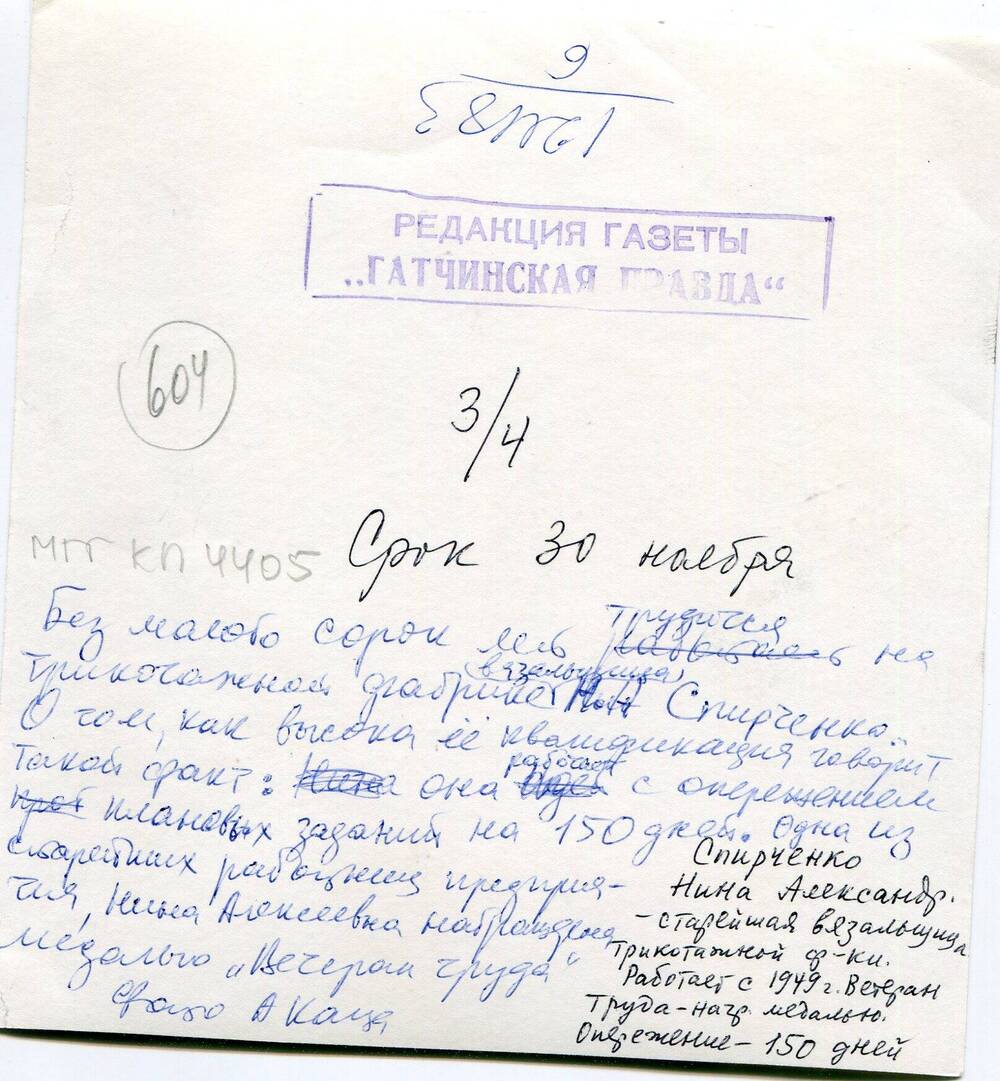 9
РЕДАКЦИЯ ГАЗЕТЫ
„ГАТЧИНСКАЯ ПРАВДА“
604
3/4
МГГ КП 4405
Срок 30 ноября
Без малого сорок лет трудится на
трикотажной фабрике вязальщица Н. А. Спирченко.
О том, как высока её квалификация говорит
такой факт: она работает с опережением
плановых заданий на 150 дней. Одна из
старейших работниц предприя-
тия, Нина Алексеевна награждена
медалью „Ветеран труда“
Фото А Каца
Спирченко
Нина Александр.
- старейшая вязальщица
Трикотажной ф-ки.
Работает с 1949 г. Ветеран
Труда - нагр. медалью.
Опережение - 150 дней